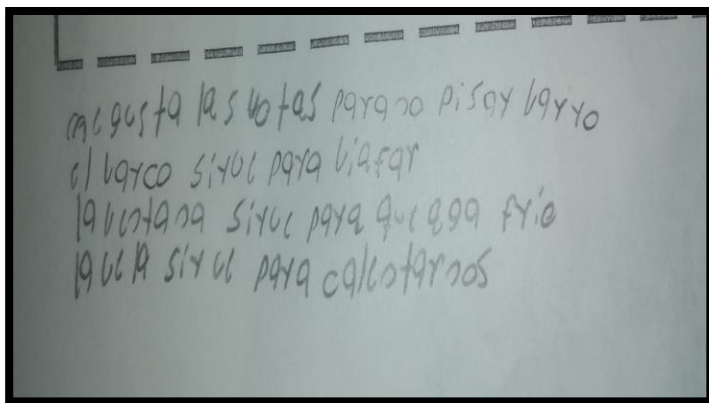 me gusta las votas parano pisar varro
el varco sirve para viafar
laventana sirve para que aga frio
lavela sirve para calentarnos